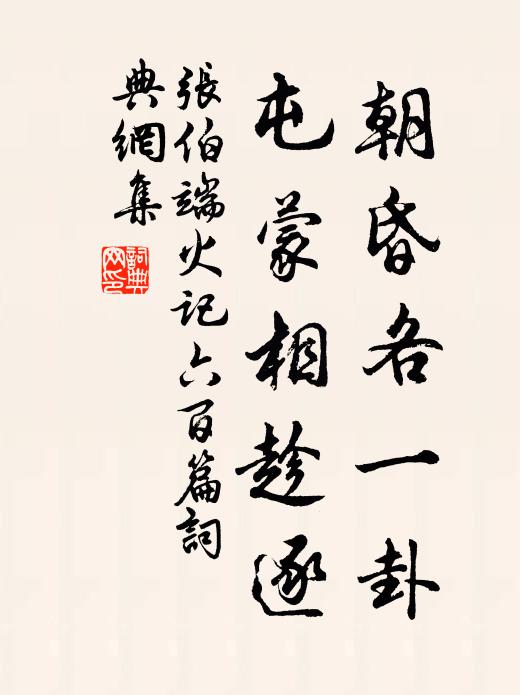 朝昏各一卦
屯蒙相趁逐
張伯端火記六百篇詞
典網集
詞典網印